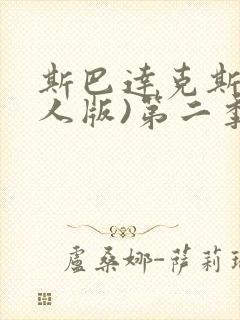 斯巴达克斯
人版)第二季
盧桑娜-薩莉瑞